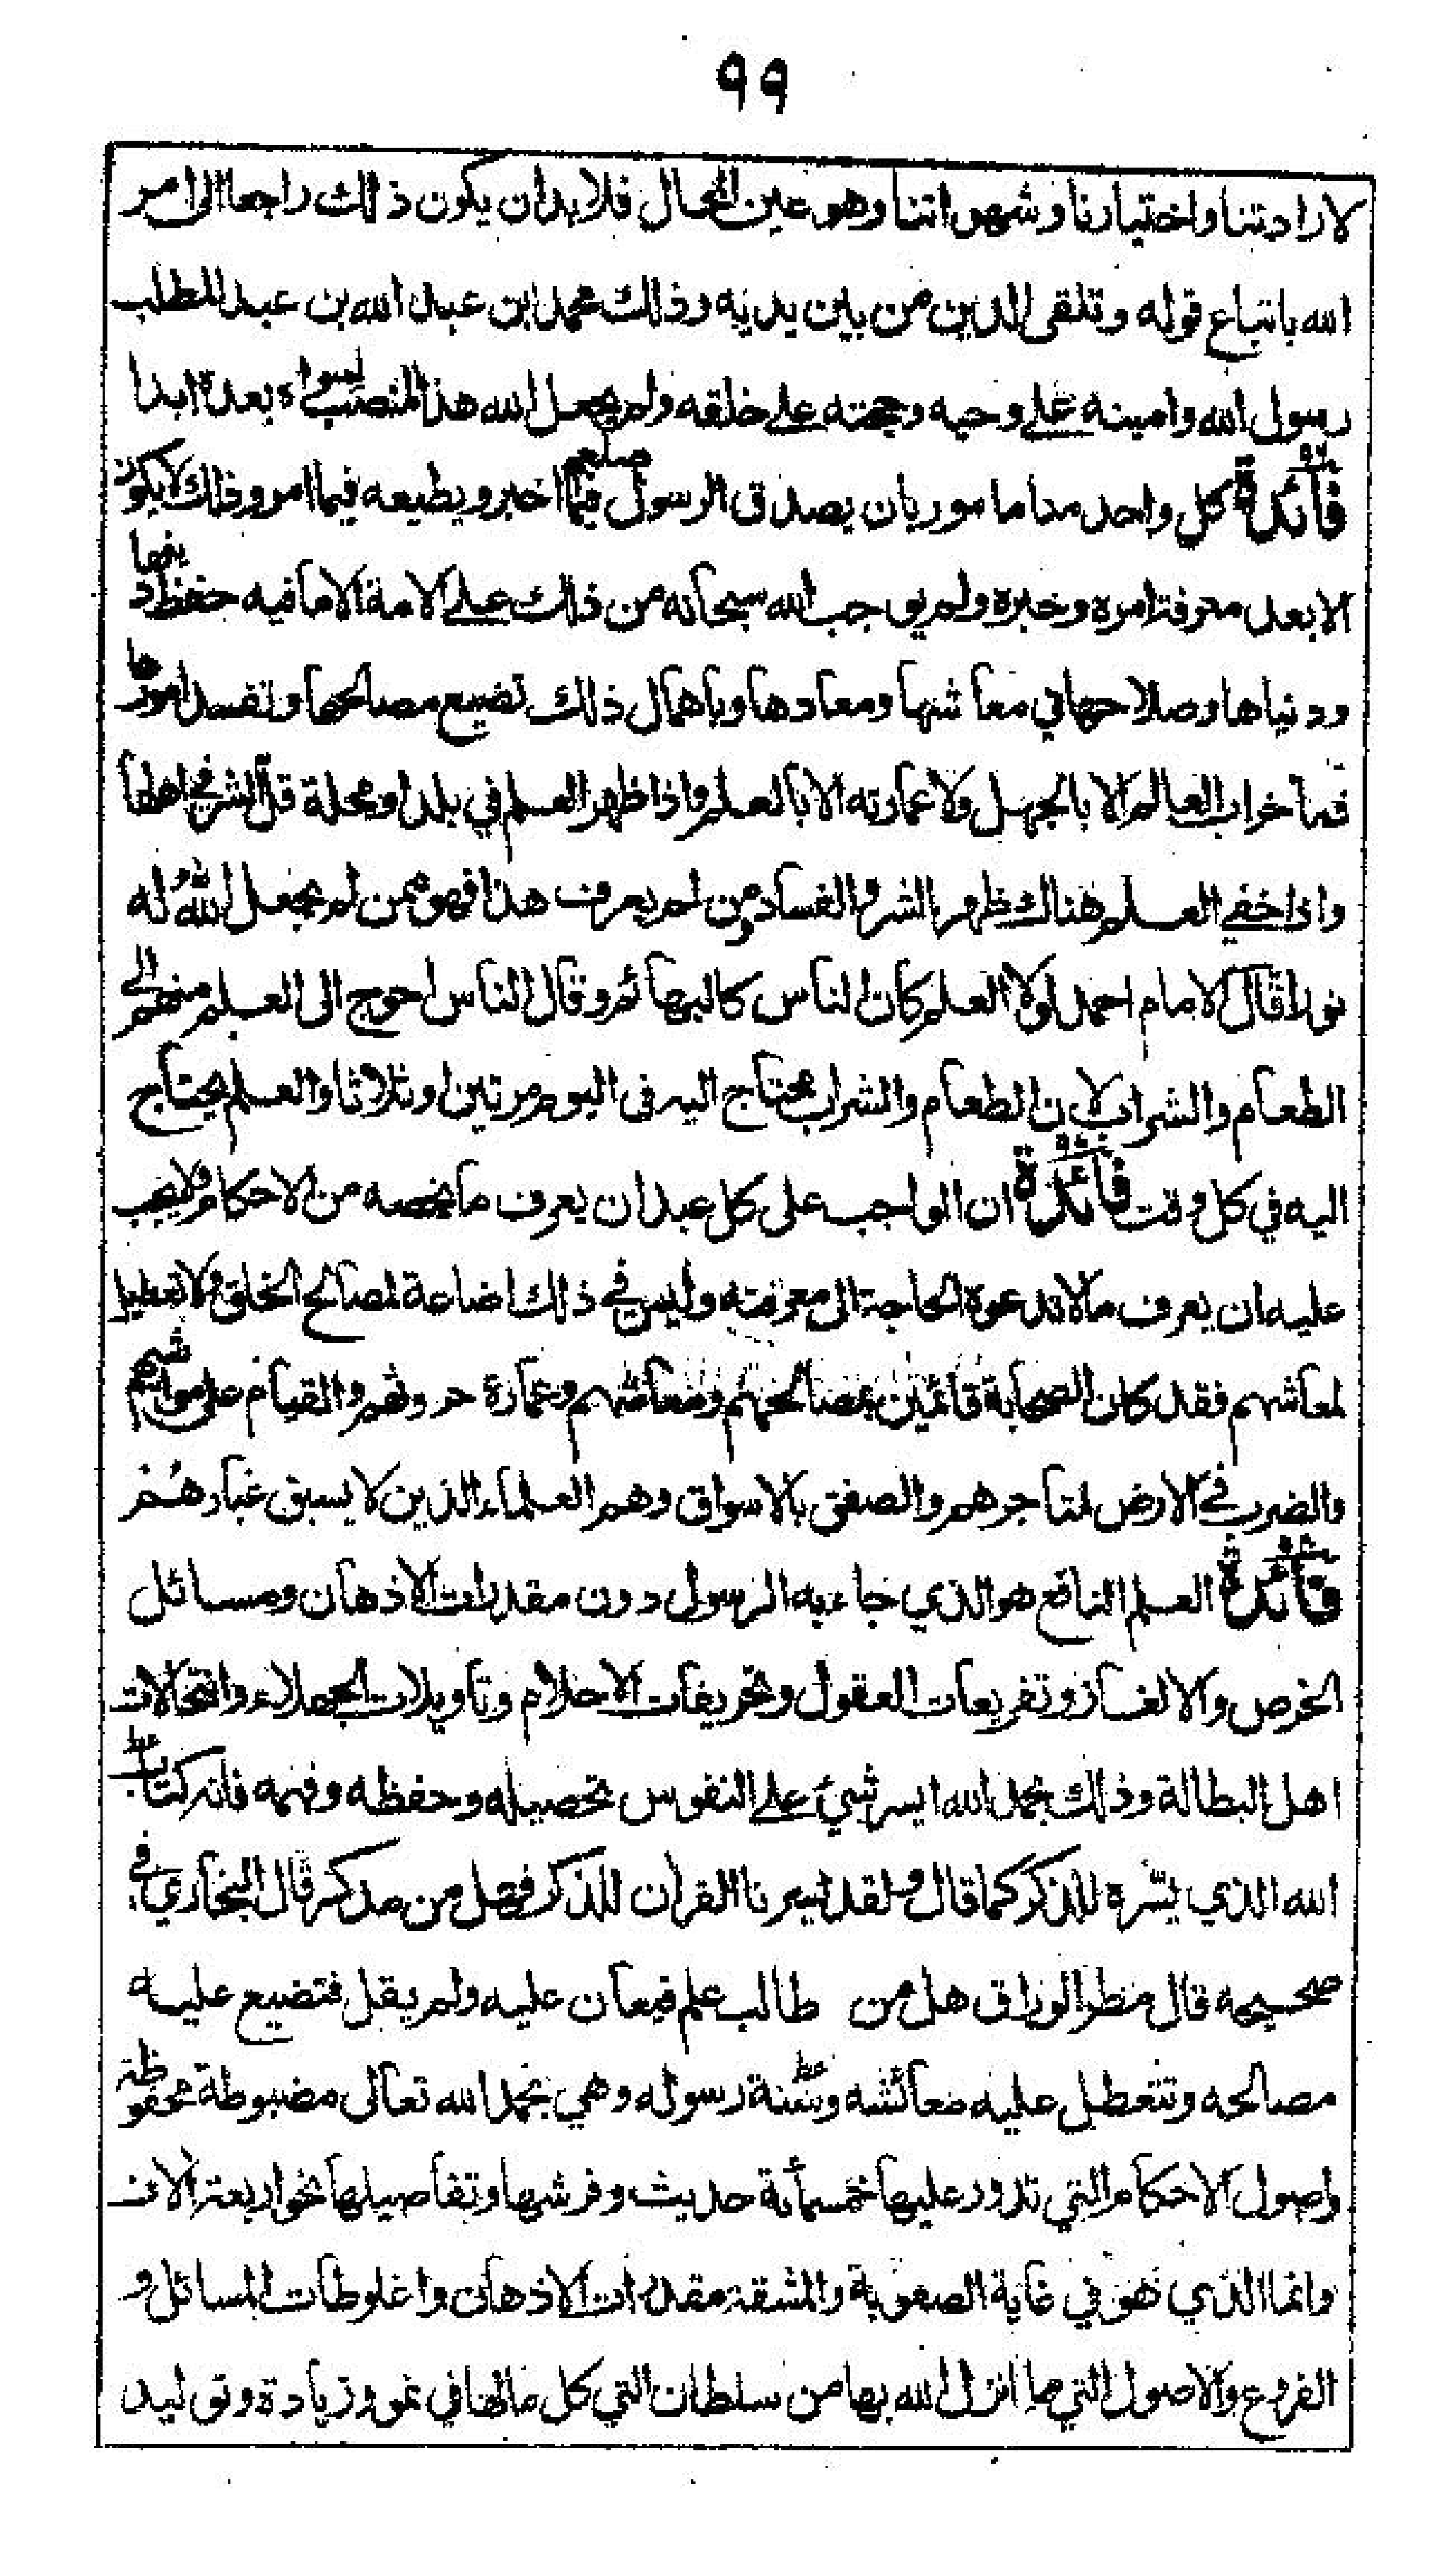 ٩٩
لارادتنا واختيارنا وشهواتنا وهو عين المحال فلا بد ان يكون ذلك راجعا الى امر
الله باتباع قوله وتلقى الدين من بين يديه وذلك محمد ابن عبد الله بن عبد المطلب
رسول الله وامينه على وحيه وحجته على خلقه ولم يجعل الله هذا المنصب لسواه بعدة ابدا
فائدة كل واحد منا مامور بان يصدق الرسول صلعم فيما اخبر ويطيعه فيما امر وذلك لا يكون
الا بعد معرفة امره وخبره ولم يوجب الله سبحانه من ذلك على الامة الا ما فيه حفظ دينها
ودنياها وصلاحها في معاشها ومعادها وباهمال ذلك تضيع مصالحها وتفسد امورها
فما خراب العالم الا بالجهل ولا عمارته الا بالعلم واذا ظهر العلم في بلد او محلة قل الشر في اهلها
واذا خفي العلم هناك ظهر الشر والفساد ومن لم يعرف هذا فهو ممن لم يجعل الله له
نورا قال الامام احمد لولا العلم كان الناس كالبهائم وقال الناس احوج الى العلم منهم الى
الطعام والشراب لان الطعام والشراب يحتاج اليه فى اليوم مرتين او ثلاثا والعلم يحتاج
اليه في كل وقت فائدة ان الواجب على كل عبد ان يعرف ما يخصه من الاحكام ولا يجب
عليه ان يعرف مالا تدعوه الحاجة الى معرفته وليس في ذلك اضاعة لمصالح الخلق ولا تعطيل
لمعاشهم فقد كان الصحابة قائمين بمصالحهم ومعاشهم وعمارة حروثهم والقيام على مواشيهم
والضرب في الارض لمتاجرهم والصفق بالاسواق وهم العلماء الذين لا يسبق غبارهم
فائدة العلم النافع هو الذي جاء به الرسول دون مقدرات الاذهان ومسائل
الخرص والالغاز وتفريعات العقول وتحريفات الاحلام وتاويلات الجهلاء وانتحالات
اهل البطالة وذلك بحمد الله ايسر شيء على النفوس تحصيله وحفظه وفهمه فانه كتاب
الله الذي يسّره للذكر كما قال ولقد يسرنا القران للذكر فهل من مدكر قال البخاري في
صحيحه قال مطر الوراق هل من طالب علم فيعان عليه ولم يقل فتضيع عليه
مصالحه وتتعطل عليه معائشه وسُنة رسوله وهي بحمد الله تعالى مضبوطة محفوظة
واصول الاحكام التي تدور عليها خمسمائة حديث وفرشها وتفاصيلها نحو اربعة الاف
وانما الذي هو في غاية الصعوبة والمشقة مقدرات الاذهان واغلوطات المسائل و
الفروع والاصول التي ما انزل الله بها من سلطان التي كل مالها في نمو وزيادة وتوليد